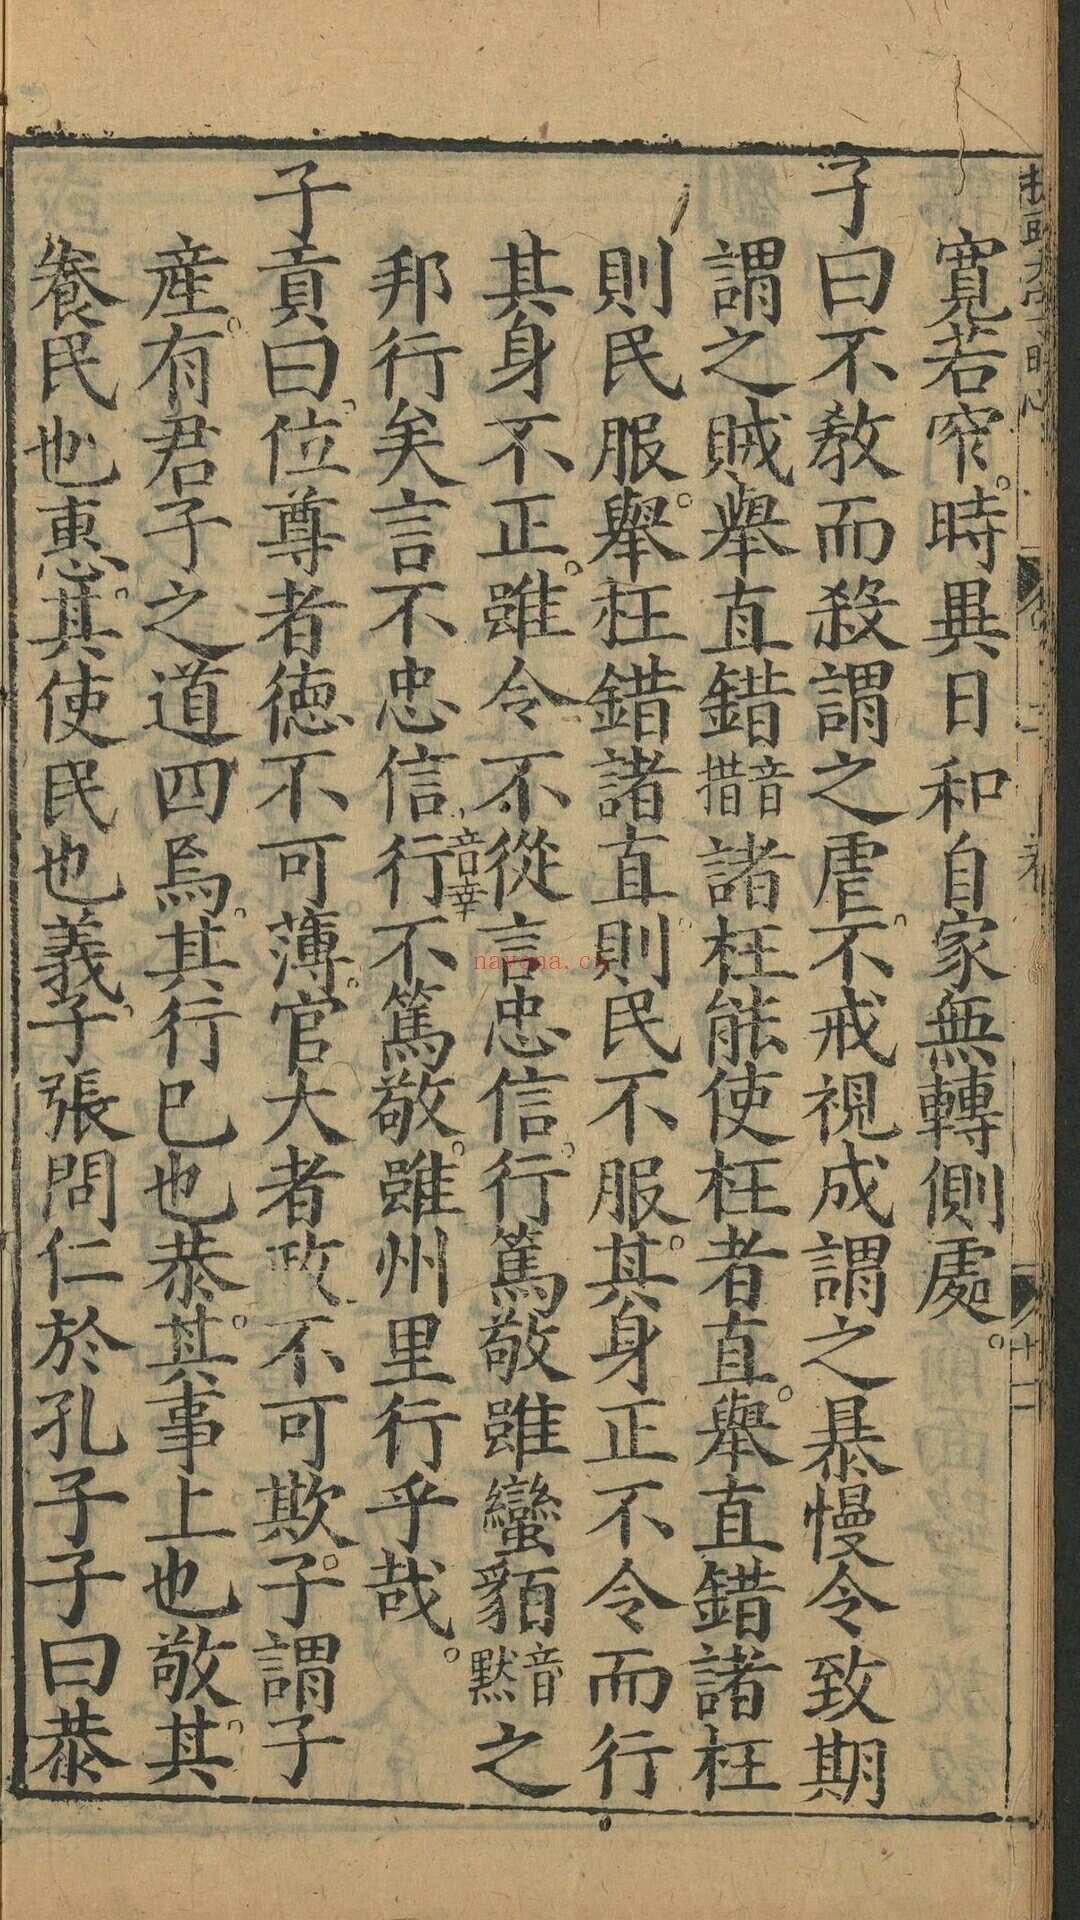 寬若窄。時異日和自家無轉側處。
子曰不教而殺謂之虐。不戒視成謂之暴慢令致期
謂之賊舉直錯音措諸枉能使枉者直。舉直錯諸枉
則民服。舉枉錯諸直則民不服。其身正不令而行
其身不正。雖令不從言忠信。行篤敬雖蠻貊音默之
邦行矣言不忠信行音幸不篤敬。雖州里行乎哉。
子貢曰。位尊者德不可薄。官大者政不可欺。子謂子
產。有君子之道四焉。其行已也恭。其事上也敬。其
養民也惠。其使民也義。子張問仁於孔子子曰恭
nayona.cn